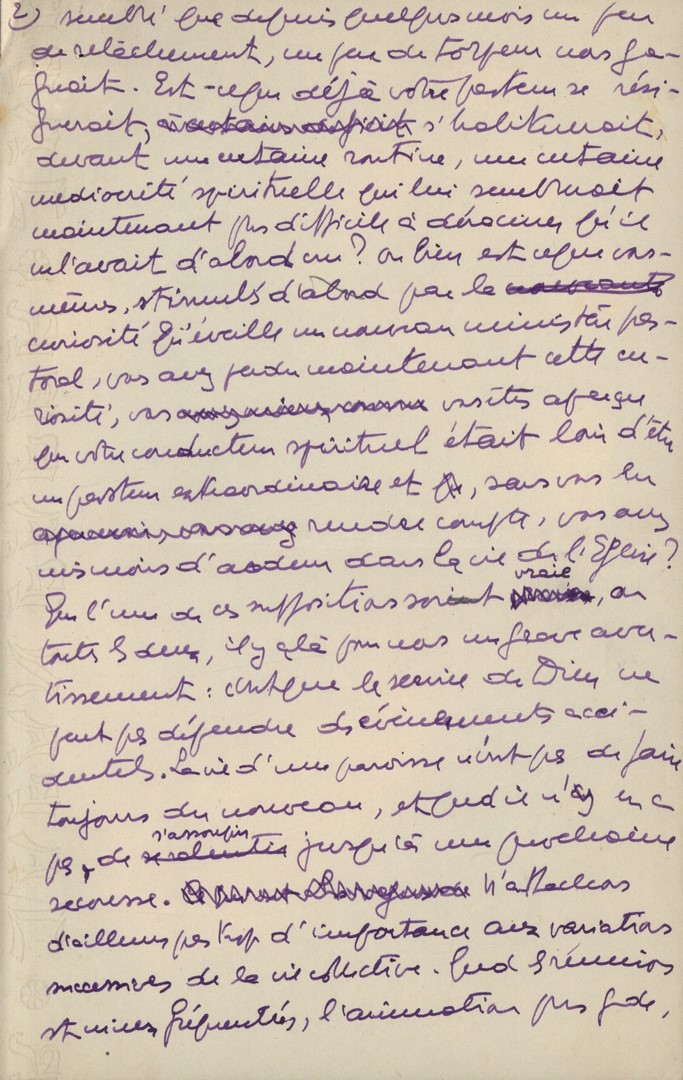 2) semblé que depuis quelques mois un peu
de relâchement, un peu de torpeur nous ga-
gnait. Est-ce que déjà votre pasteur se rési-
gnerait, s'habituerait,
devant une certaine routine, une certaine
médiocrité spirituelle qui lui semblerait
maintenant plus difficile à déraciner qu'il
ne l'avait d'abord cru? ou bien est-ce que vous-
mêmes, stimulés d'abord par la
curiosité qu'éveille un nouveau ministère pas-
toral, vous avez perdu maintenant cette cu-
riosité, vous vous êtes aperçu
que votre conducteur spirituel était loin d'être
un pasteur extraordinaire et, sans vous en
rendre compte, vous avez
mis moins d'ardeur dans la vie de l'Eglise?
Que l'une de ces suppositions soient vraie, ou
toutes les deux, il y a là pour nous un grave aver-
tissement: c'est que le service de Dieu ne
peut pas dépendre des événements acci-
dentels. La vie d'une paroisse n'est pas de faire
toujours du nouveau, et quand il n'y en a
pas, de s'assoupir jusqu'à une prochaine
secousse. N'attachons
d'ailleurs pas trop d'importance aux variations
successives de la vie collective. Quand les réunions
sont mieux fréquentées, l'animation plus grande,